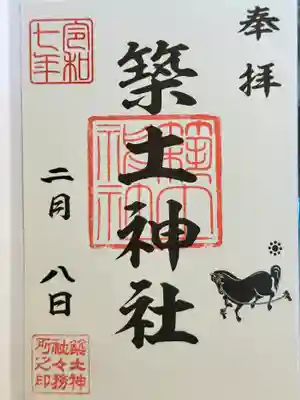 奉拝
築土神社
築土神社
令和
七年
二月八日
築土神
社々務
所之印